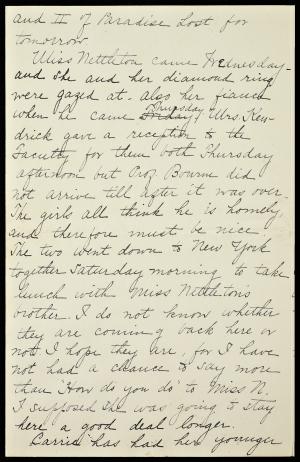 and II of Paradise Lost for
tomorrow.
Miss Nettleton came Wednesday -
and she and her diamond ring
were gazed at - also her fiance
when he came Friday Thursday. Mrs. Ken-
drick gave a reception to the
Faculty for them both Thursday
afternoon but Prof Bourne did
not arrive till after it was over.
The girls all think he is homely
and therefore must be nice.
The two went down to New York
together Saturday morning to take
lunch with Miss Nettleton's
brother. I do not know whether
they are coming back here or
not. I hope they are, for I have
not had a chance to say more
than "How do you do" to Miss N.
I supposed she was going to stay
here a good deal longer.
Carrie has had her younger